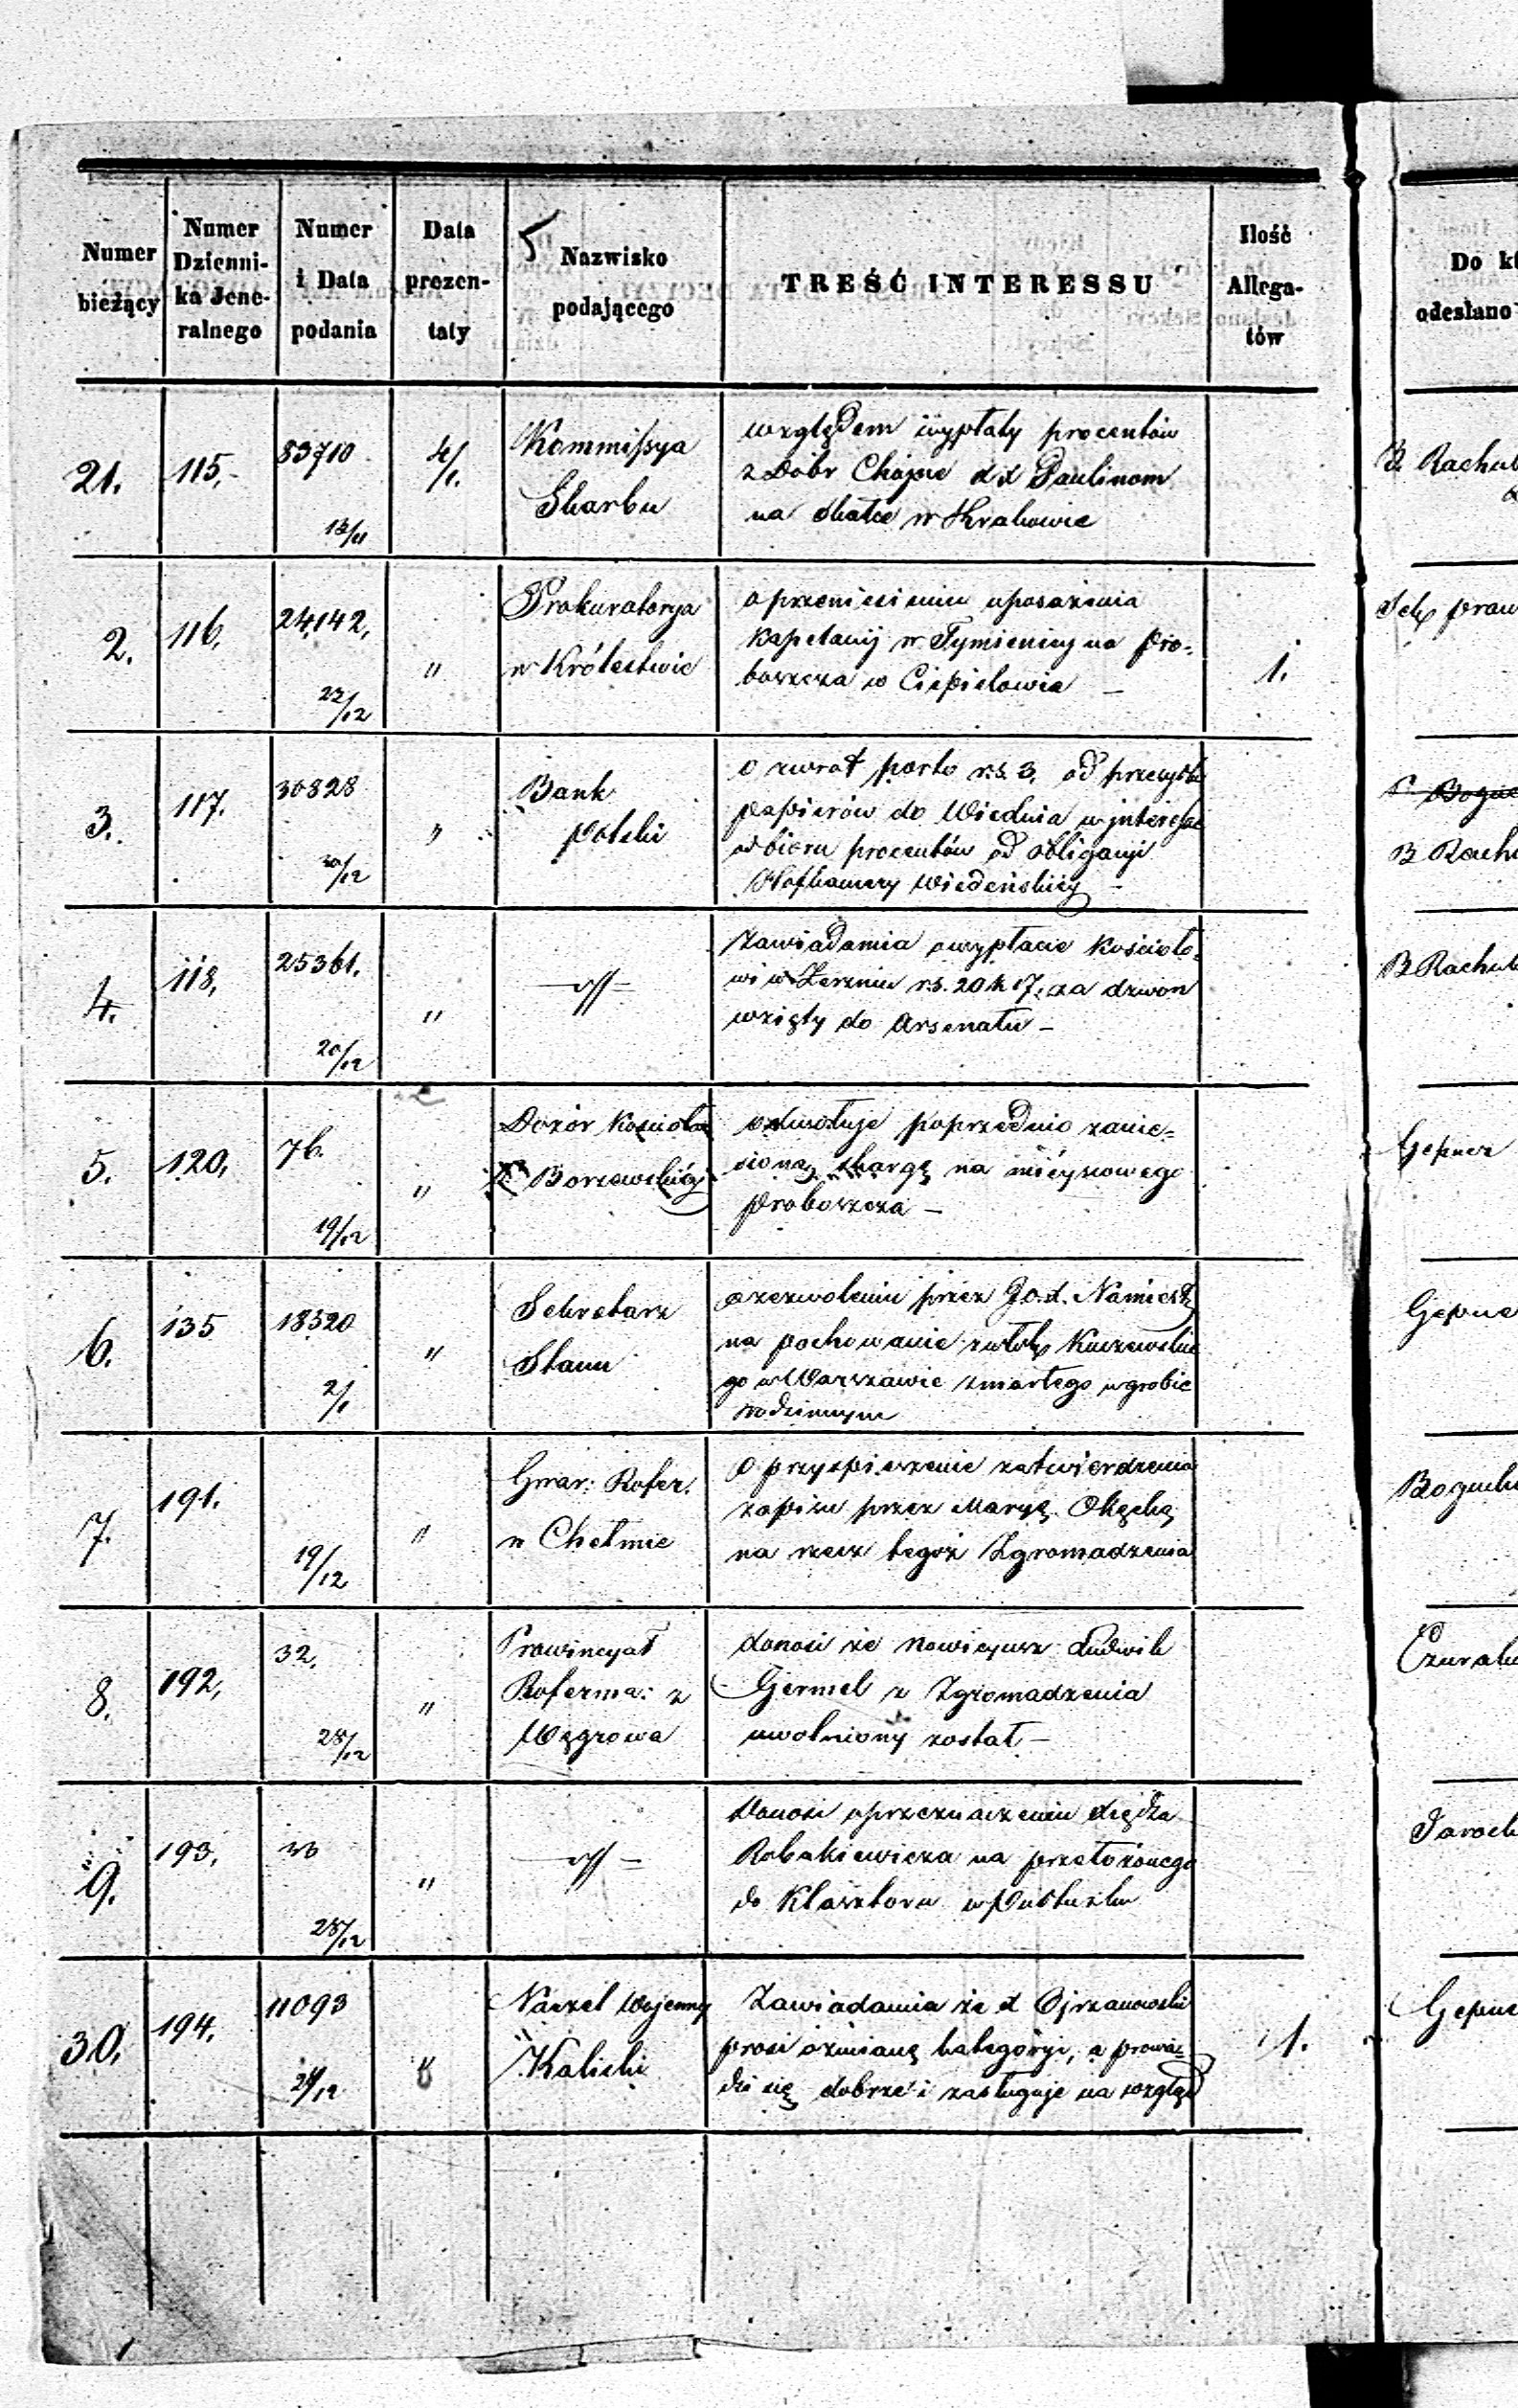 Numer bieżący
Numer Dzienni- ka Jene- ralnego
Numer i Data podania
Data prezen- taty
5 Nazwisko podającego
TREŚĆ INTERESSU
Ilość Allega- tów
Do
odesłano
21. 115. 83710 13/11 4/1.
Kommissya
Skarbu
względem wypłaty procentów
z Dóbr Chojne dd Paulinom
na Skałce w Krakowie
B. Rachub
2. 116. 24,142, 23/12 "
Prokuratorya
w Królestwie
o przeniesieniu uposażenia
Kapelanij w Tymienicy na pro-
boszcza w Ciepielowie –
1.
praw
3. 117. 30828 30/12 "
Bank
Polski
o zwrot porto r.s. 3, od przesyłki
papierów do Wiednia w interesse
odbioru procentów od obligacyi
Hofkamery Wiedeńskiéy –
B Rach
4. 118, 25361. 20/12 "
Zawiadamia o wypłacie Kościoło-
wi w Zerzniu r.s. 20 k 17. za dzwon
wzięty do Arsenału –
B Rachub
5. 120, 76. 19/12 "
Dozór Kościoła
Borzewskiéy
odwołuje poprzednio zanie-
sioną skargę na miéyscowego
proboszcza –
Gepner
6. 135 18320 2/1 "
Sekretarz
Stanu
o zezwoleniu przez J.O.X. Namiest.
na pochowanie zwłok Kuczewskie
go w Warszawie zmarłego w grobie
rodzinnym
Gepne
7. 191. 19/12 "
Gwar: Refor.
w Chełmie
o przyspieszenie zatwierdzenia
zapisu przez Maryę Okęcką
na rzecz tegoż Zgromadzenia
8. 192, 32. 28/12 "
Prowincyał
Reforma: z
Węgrowa
donosi że Nowicyusz Ludwik
Germel z Zgromadzenia
uwolniony został –
9. 193, 33 28/12 "
donosi o przeznaczeniu Księdza
Robakiewicza na przełożonego
do Klasztoru w Pułtusku
30. 194. 11093 24/12 "
Naczel Wojenny
Kaliski
Zawiadamia że X Ojrzanowski
prosi o zmianę kategoryi, a prowa-
dzi się dobrze i zasługuje na wzgląd
1.
Gepne